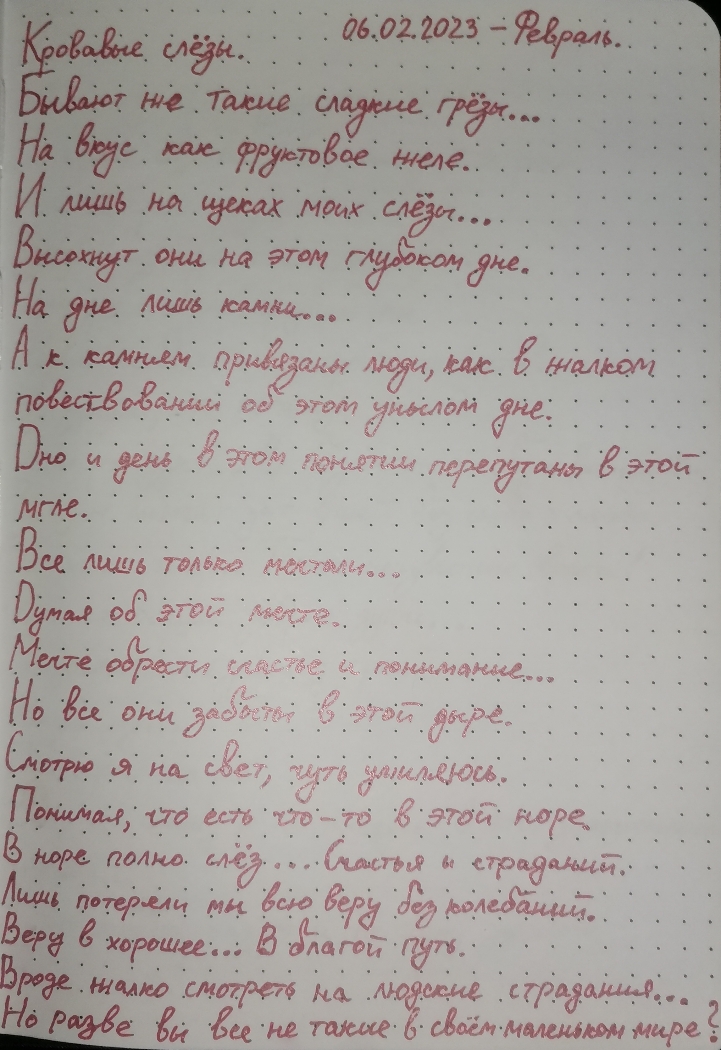 06.02.2023 - Февраль.
Кровавые слёзы.
Бывают же такие сладкие грёзы...
На вкус как фруктовое желе.
И лишь на щеках моих слёзы...
Высохнут они на этом глубоком дне.
На дне лишь камни...
А к камням привязаны люди, как в жалком
повествовании об этом унылом дне.
Дно и день в этом понятии перепутаны в этой
мгле.
Все лишь только мечтали...
Думая об этой мечте.
Мечте обрести счастье и понимание...
Но все они забыты в этой дыре.
Смотрю я на свет, чуть умиляюсь.
Понимая, что есть что-то в этой норе
В норе полно слёз... Счастья и страданий.
Лишь потеряли мы всю веру без колебаний.
Веру в хорошее... В благой путь.
Вроде жалко смотреть на людские страдания...
Но разве вы все не такие в своём маленьком мире?